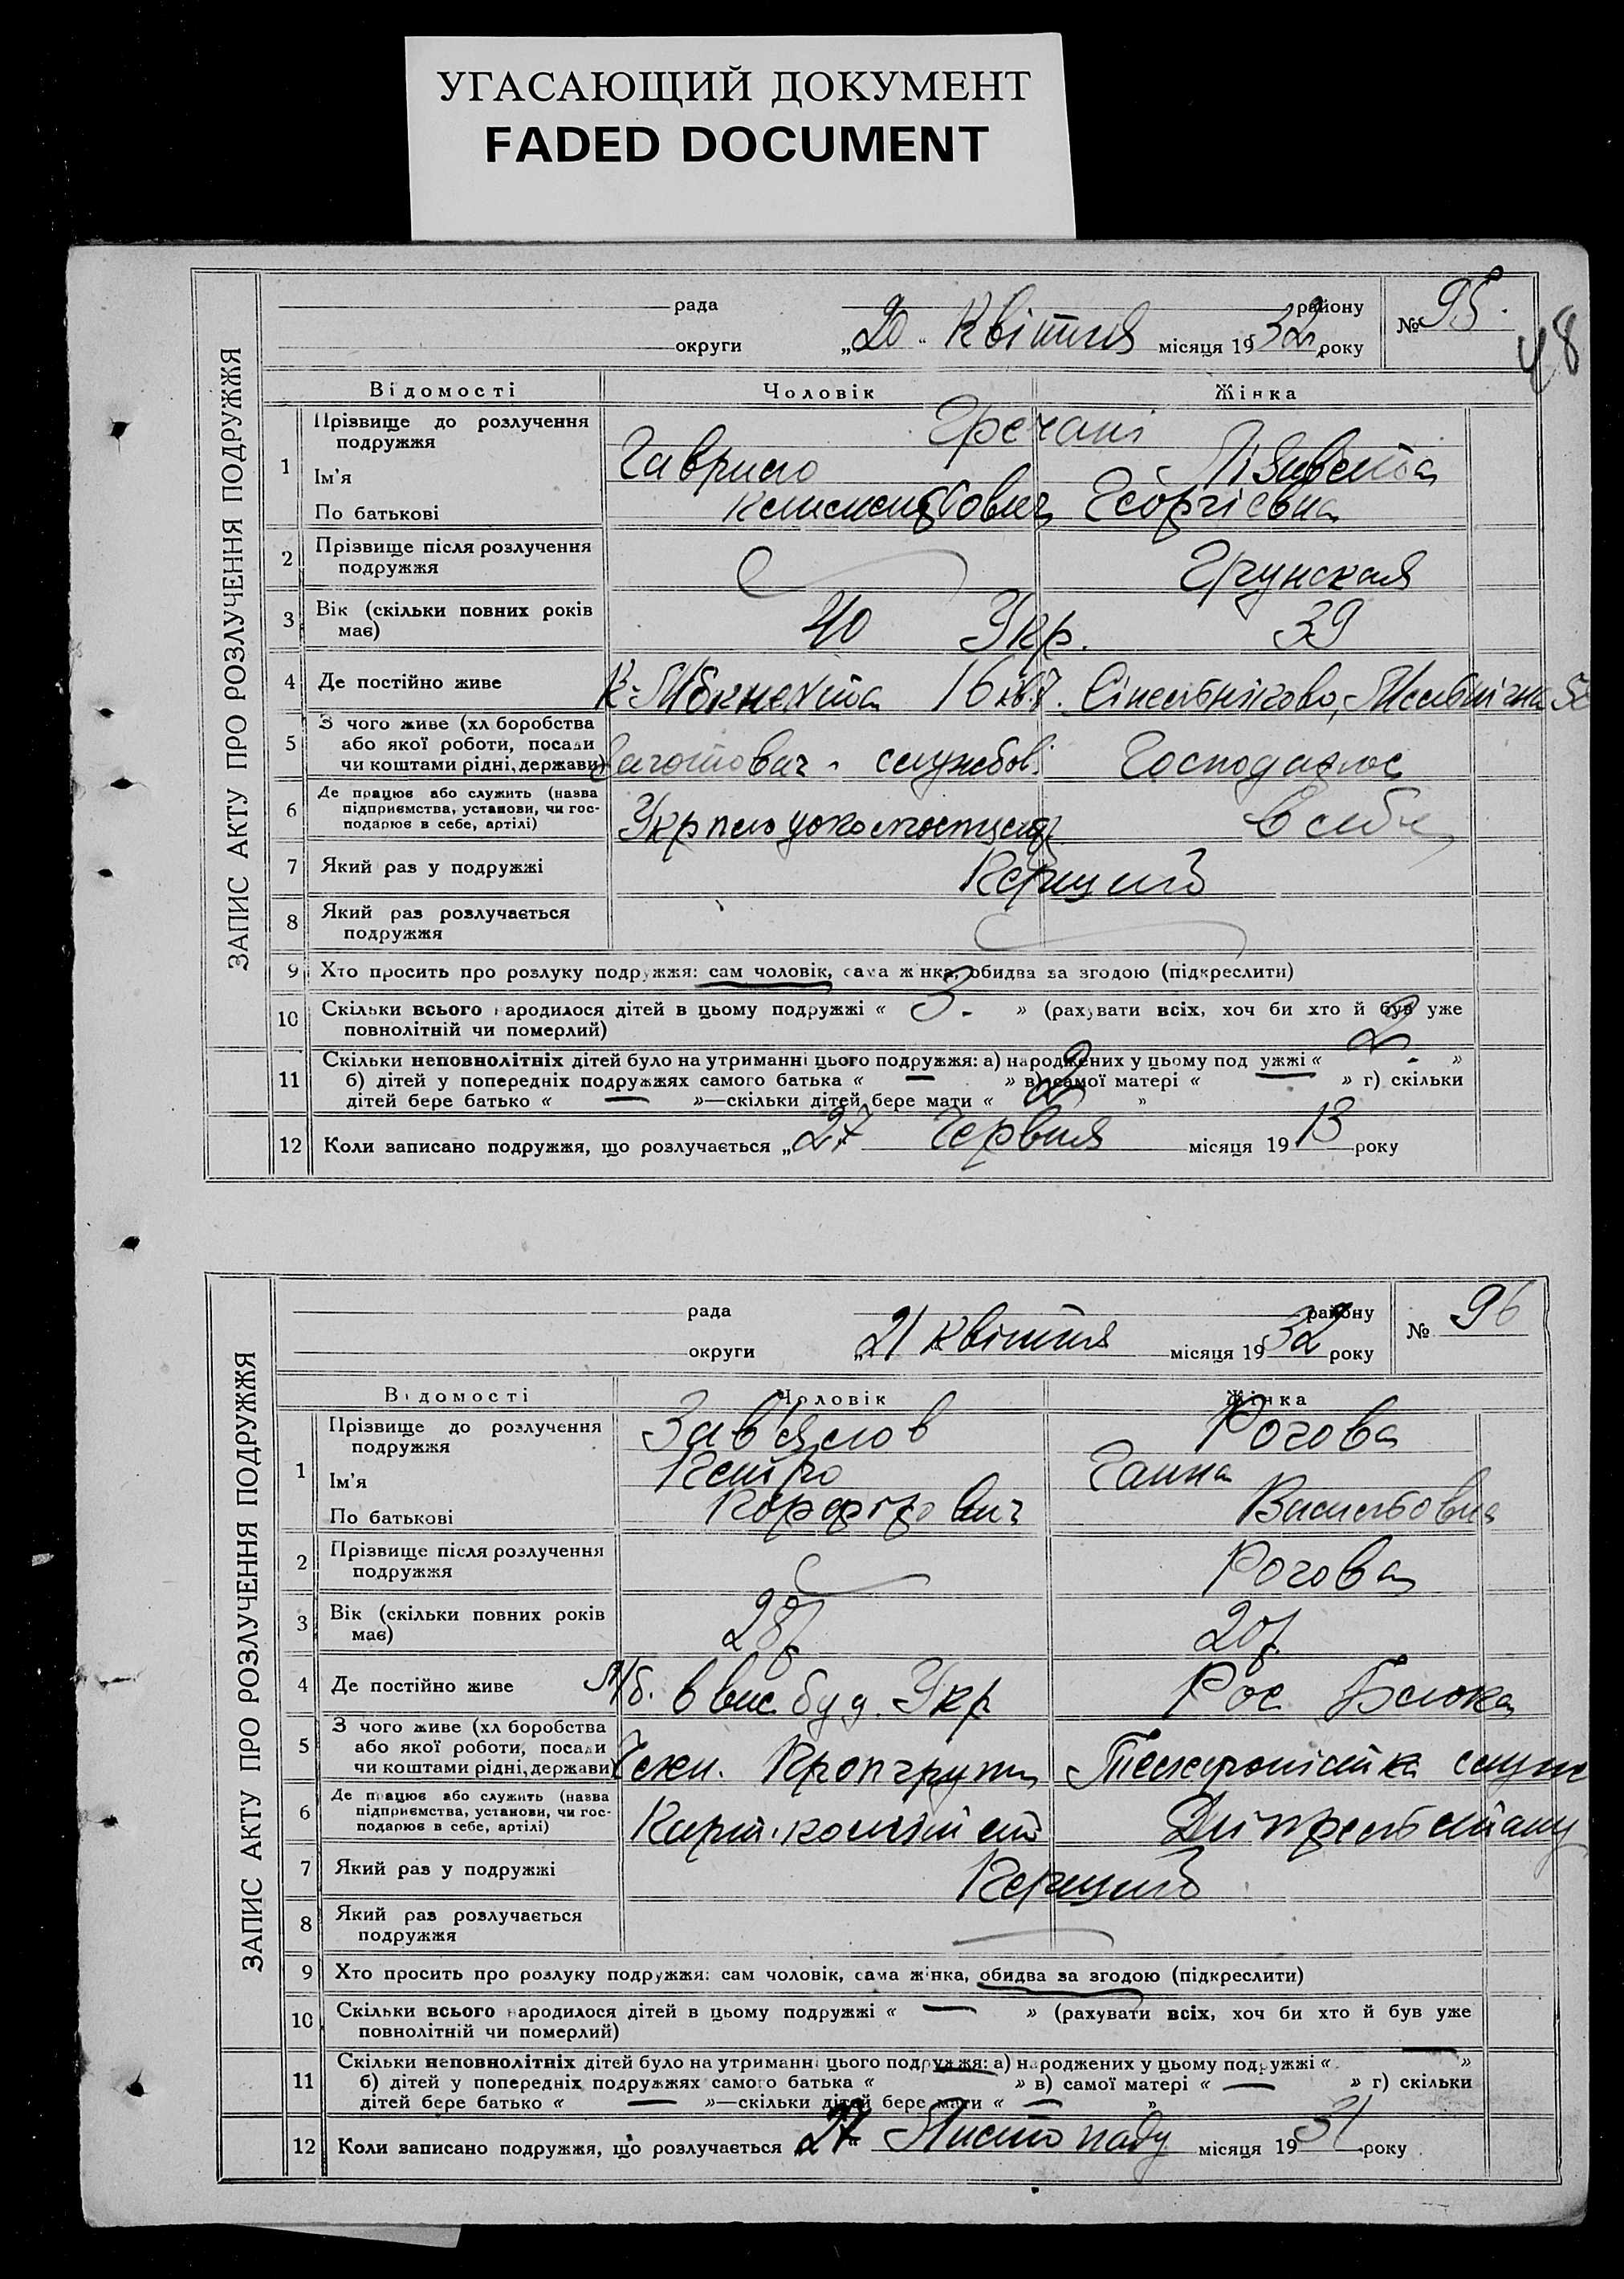 УГАСАЮЩИЙ ДОКУМЕНТ
FADED DOCUMENT
48
ЗАПИС АКТУ ПРО РОЗЛУЧЕННЯ ПОДРУЖЖЯ
рада району
округи „20" Квітня місяця 1932 року
№ 95.
Відомості Чоловік Жінка
1 Прізвище до розлучення подружжя Гречані
Ім'я Гаврило Лізавета
По батькові Климентович Георгієвна
2 Прізвище після розлучення
подружжя
3 Вік (скільки повних років
має) 40 Укр. 39
4 Де постійно живе К-Лібкнехта 16 кв.
5 З чого живе (хл боробства
або якої роботи, посади
чи коштами рідні, держави) службов. Господарює
6 Де працює або служить (назва
підприємства, установи, чи гос-
подарює в себе, артілі) в себе
7 Який раз у подружжі Перший
8 Який раз розлучається
подружжя
9 Хто просить про розлуку подружжя: сам чоловік, сама жінка, обидва за згодою (підкреслити)
10 Скільки всього народилося дітей в цьому подружжі « 3. » (рахувати всіх, хоч би хто й був уже
повнолітній чи померлий)
11 Скільки неповнолітніх дітей було на утриманні цього подружжя: а) народжених у цьому подружжі « 2 »
б) дітей у попередніх подружжях самого батька « — » в) самої матері « » г) скільки
дітей бере батько « — »—скільки дітей бере мати « 2 »
12 Коли записано подружжя, що розлучається „27 Червня місяця 1913 року
ЗАПИС АКТУ ПРО РОЗЛУЧЕННЯ ПОДРУЖЖЯ
рада району
округи „21 Квітня місяця 1932 року
№ 96
Відомості Чоловік Жінка
1 Прізвище до розлучення
подружжя Зав'ялов Рогова
Ім'я Петро Ганна
По батькові
2 Прізвище після розлучення
подружжя Рогова
3 Вік (скільки повних років
має) 28р 20р.
4 Де постійно живе Укр Рос Блока
5 З чого живе (хл боробства
або якої роботи, посади
чи коштами рідні, держави) Телефонистка служ
6 Де працює або служить (назва
підприємства, установи, чи гос-
подарює в себе, артілі)
7 Який раз у подружжі Перший
8 Який раз розлучається
подружжя —
9 Хто просить про розлуку подружжя: сам чоловік, сама жінка, обидва за згодою (підкреслити)
10 Скільки всього народилося дітей в цьому подружжі « — » (рахувати всіх, хоч би хто й був уже
повнолітній чи померлий)
11 Скільки неповнолітніх дітей було на утриманні цього подружжя: а) народжених у цьому подружжі « — »
б) дітей у попередніх подружжях самого батька « » в) самої матері « — » г) скільки
дітей бере батько « — »—скільки дітей бере мати « — »
12 Коли записано подружжя, що розлучається 27 Листопаду місяця 1931 року